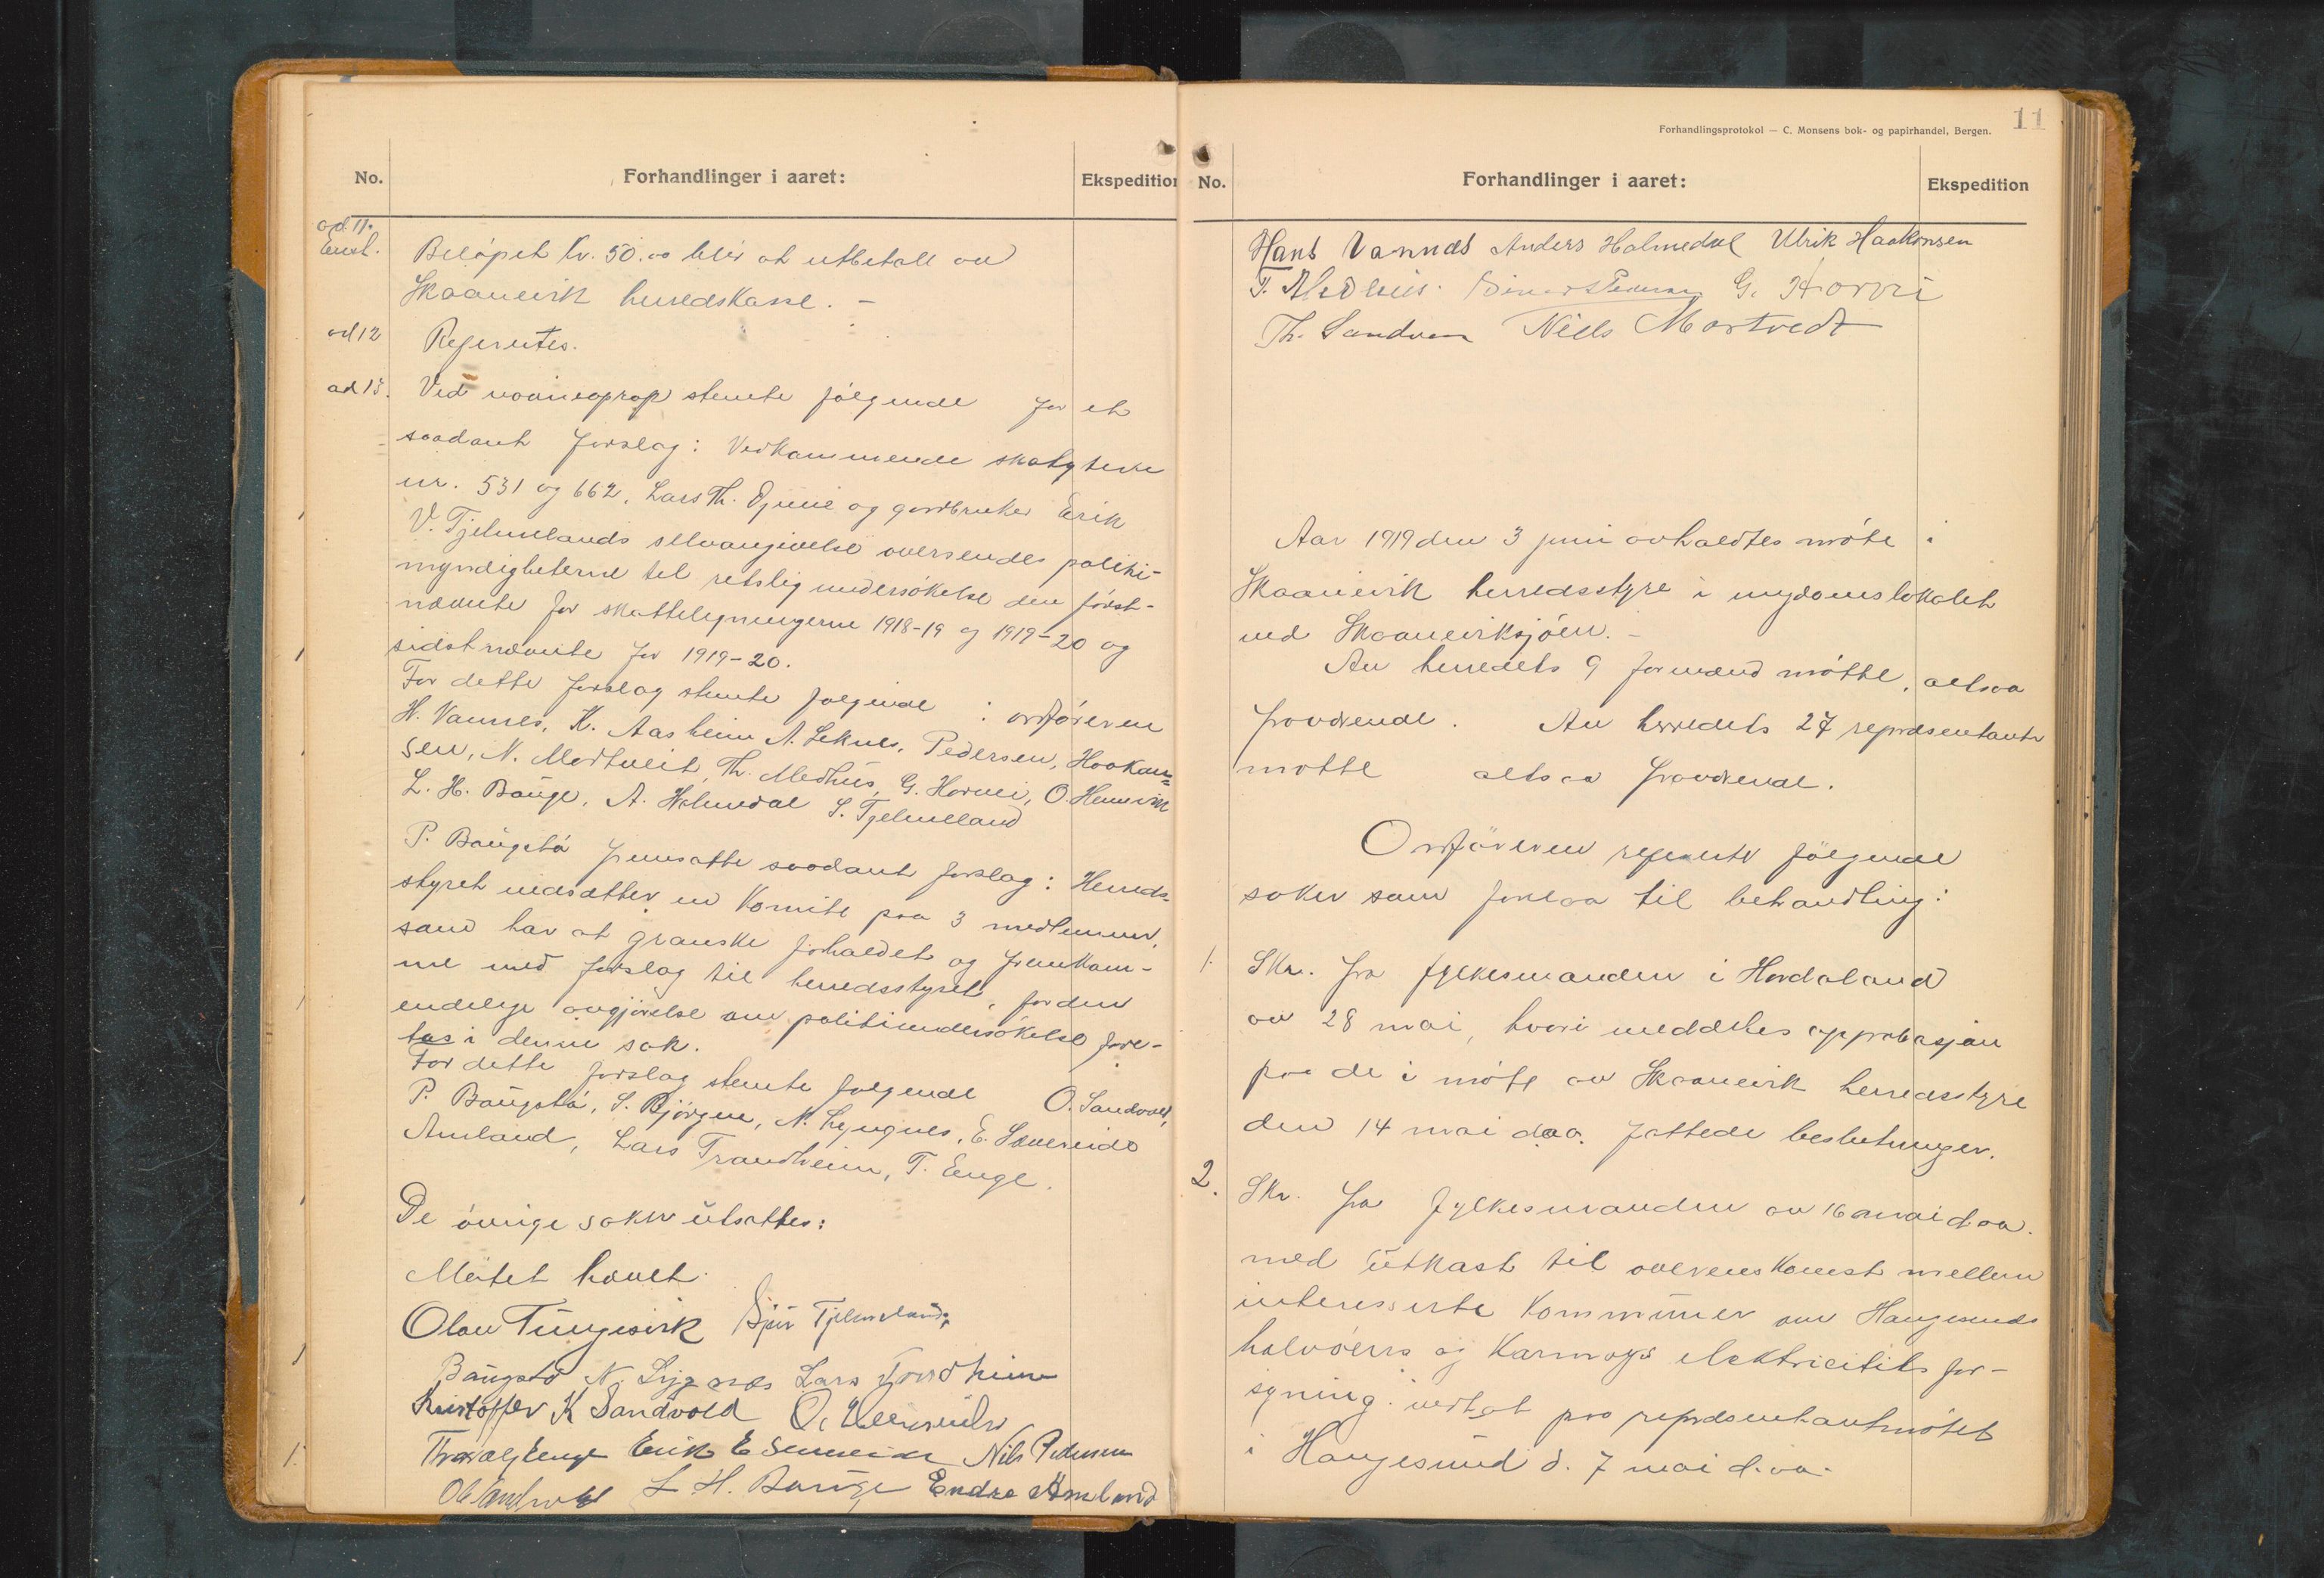 No.
Forhandlinger i aaret:
Ekspedition
ad 11.
Enst.
Beløpet kr. 50.00 blir at utbetale av
Skaanevik herredskasse. –
ad 12
Refereutes.
ad 13.
Ved navneoprop stemte følgende for et
saadant forslag: Vedkommende skatytere
nr. 531 og 662, Lars Th. og gardbruker Erik
V. Tjelmelands selvangivelse oversendes politi-
myndigheterne til retslig undersøkelse den først-
nævnte for skattelegningerne 1918-19 og 1919-20 og
sidstnævnte for 1919-20.
For dette forslag stemte følgende : ordføreren
H. Vannes, K. Aasheim A. Leknes, Pedersen, Haakon=
sen, N. Mortveit, Th. Medhus, G. Horvei, O. Hemnvik
L. H. Bauge, A. Holmedal S. Tjelmeland
P. Baugstø fremsatte saadant forslag: Herreds-
styret nedsætter en komite paa 3 medlemmer,
som har at granske forholdet og fremkom-
me med forslag til herredsstyret, før den
endelige avgjørelse om politiundersøkelse fore-
tas i denne sak.
For dette forslag stemte følgende O. Sandvold,
P. Baugstø, S. Bjørgen, N. Lyngnes, E. Severeide
Amland, Lars Trandheim, T. Enge.
De øvrige saker utsattes:
Møtet hævet.
Olav Tungesvik Sjur Tjelmeland;
Baugstø N. Lygnæs Lars
Kristoffer K Sandvold O.
Enge Erik E Nils Pedersen
L. H. Bauge Endre Amland
Forhandlingsprotokol — C. Monsens bok- og papirhandel, Bergen.
11
No.
Forhandlinger i aaret:
Ekspedition
Hans Vannes Anders Holmedal Ulrik Haakonsen
T. Medhus. Pedersen G. Horvei
Th. Sandven Niels Mortvedt
Aar 1919 den 3 juni avholdtes møte i
Skaanevik herredsstyre i ungdomslokalet
ved Skaaneviksjøen. –
Av herredets 9 formænd møtte , altsaa
fraværende . Av herredets 27 repræsentanter
møtte altsaa fraværende.
Ordføreren refererte følgende
saker som forelaa til behandling:
1.
Skr. fra fylkesmanden i Hordaland
av 28 mai, hvori meddeles approbasjon
paa de i møte av Skaanevik herredsstyre
den 14 mai d.aa. fattede beslutninger.
2.
Skr. fra fylkesmanden av 16 mai d.aa.
med utkast til overenskomst mellem
interesserte kommuner om Haugesunds
halvøens og Karmøys elektricitets for-
syning. vedtat paa repræsentantmøtet
i Haugesund d. 7 mai d.aa.